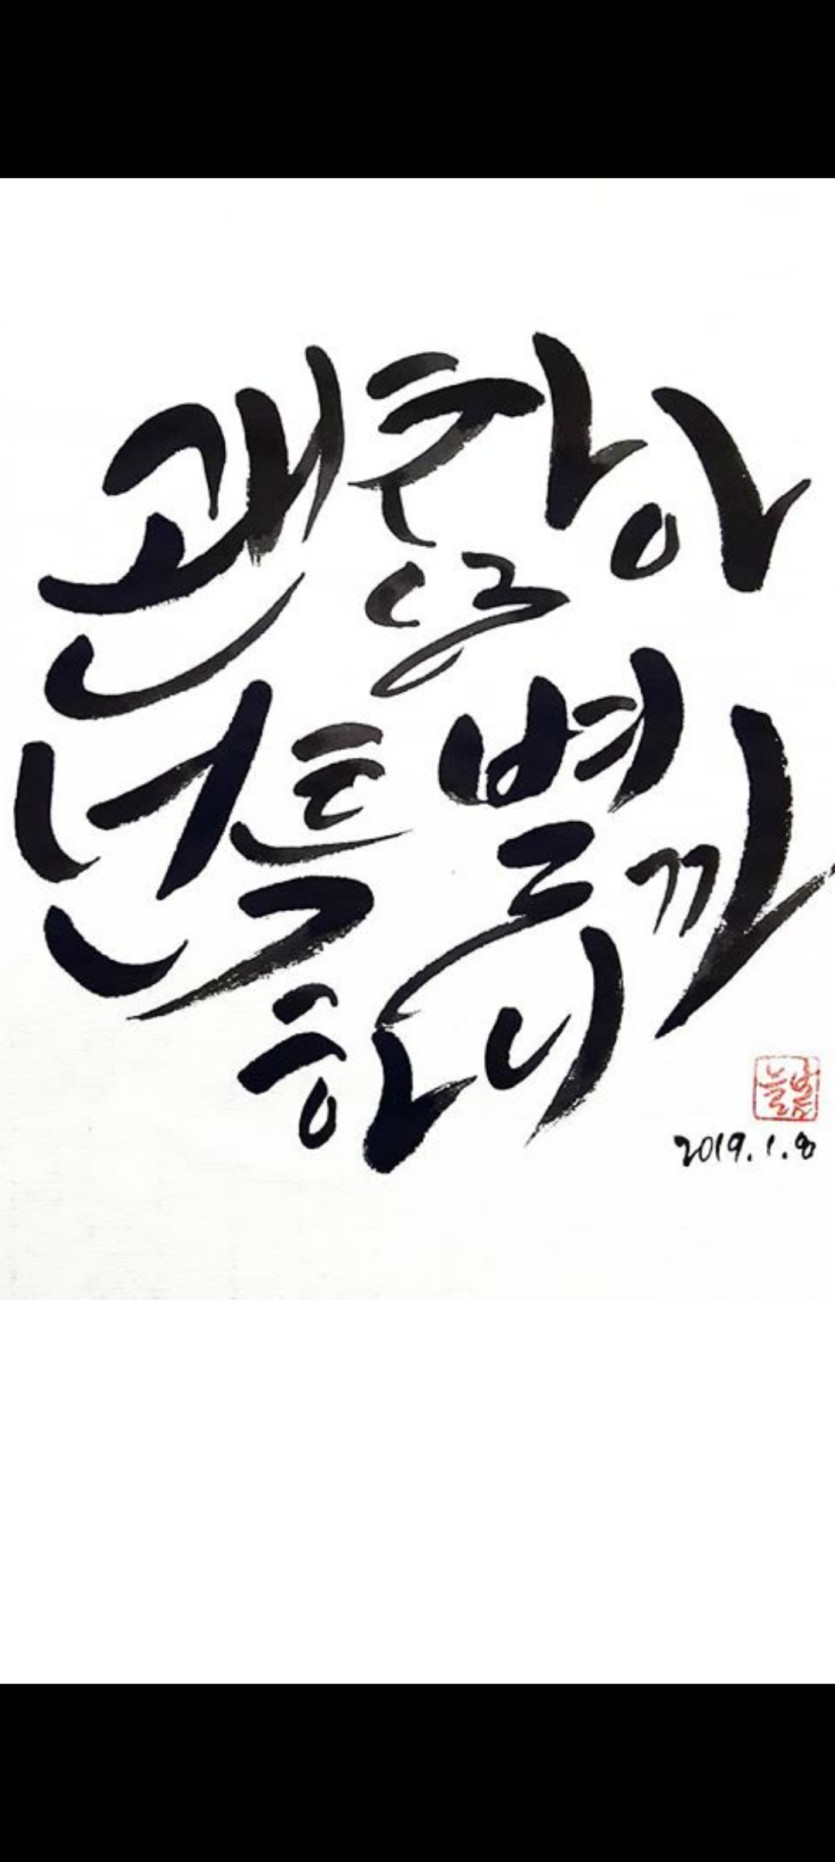 괜찮아
넌 특별
하니까
2019.1.8